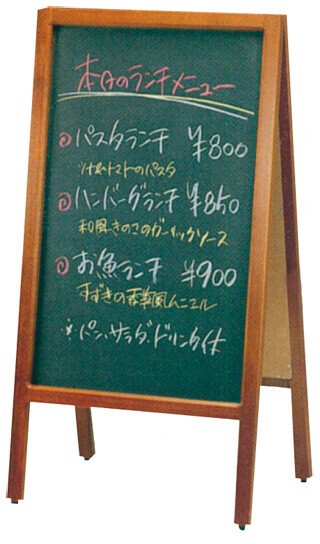 本日のランチメニュー
パスタランチ ¥800
ツナ&トマトのパスタ
ハンバーグランチ ¥850
和風きのこのガーリックソース
お魚ランチ ¥900
すずきの香草風ムニエル
※パン、サラダ、ドリンク付